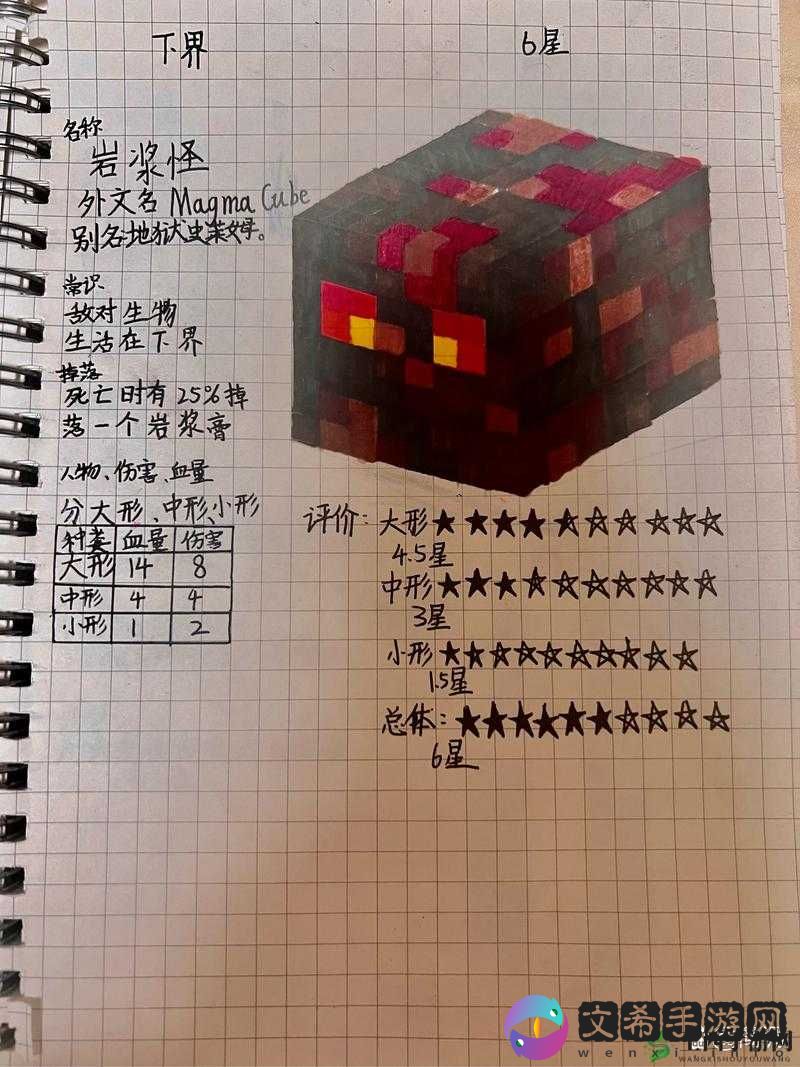 下界
6星
名称
岩浆怪
外文名 Magma Cube
别名地狱史莱姆。
常识
敌对生物
生活在下界
掉落
死亡时有25%掉
落一个岩浆膏
人物、伤害、血量
分大形、中形、小形
种类 血量 伤害
大形 14 8
中形 4 4
小形 1 2
评价：大形★★★★★☆☆☆☆☆
4.5星
中形★★★☆☆☆☆☆☆☆
3星
小形★★☆☆☆☆☆☆☆☆
1.5星
总体：★★★★★★☆☆☆☆
6星
文希手游网
WANGXISHOUYOUWANG